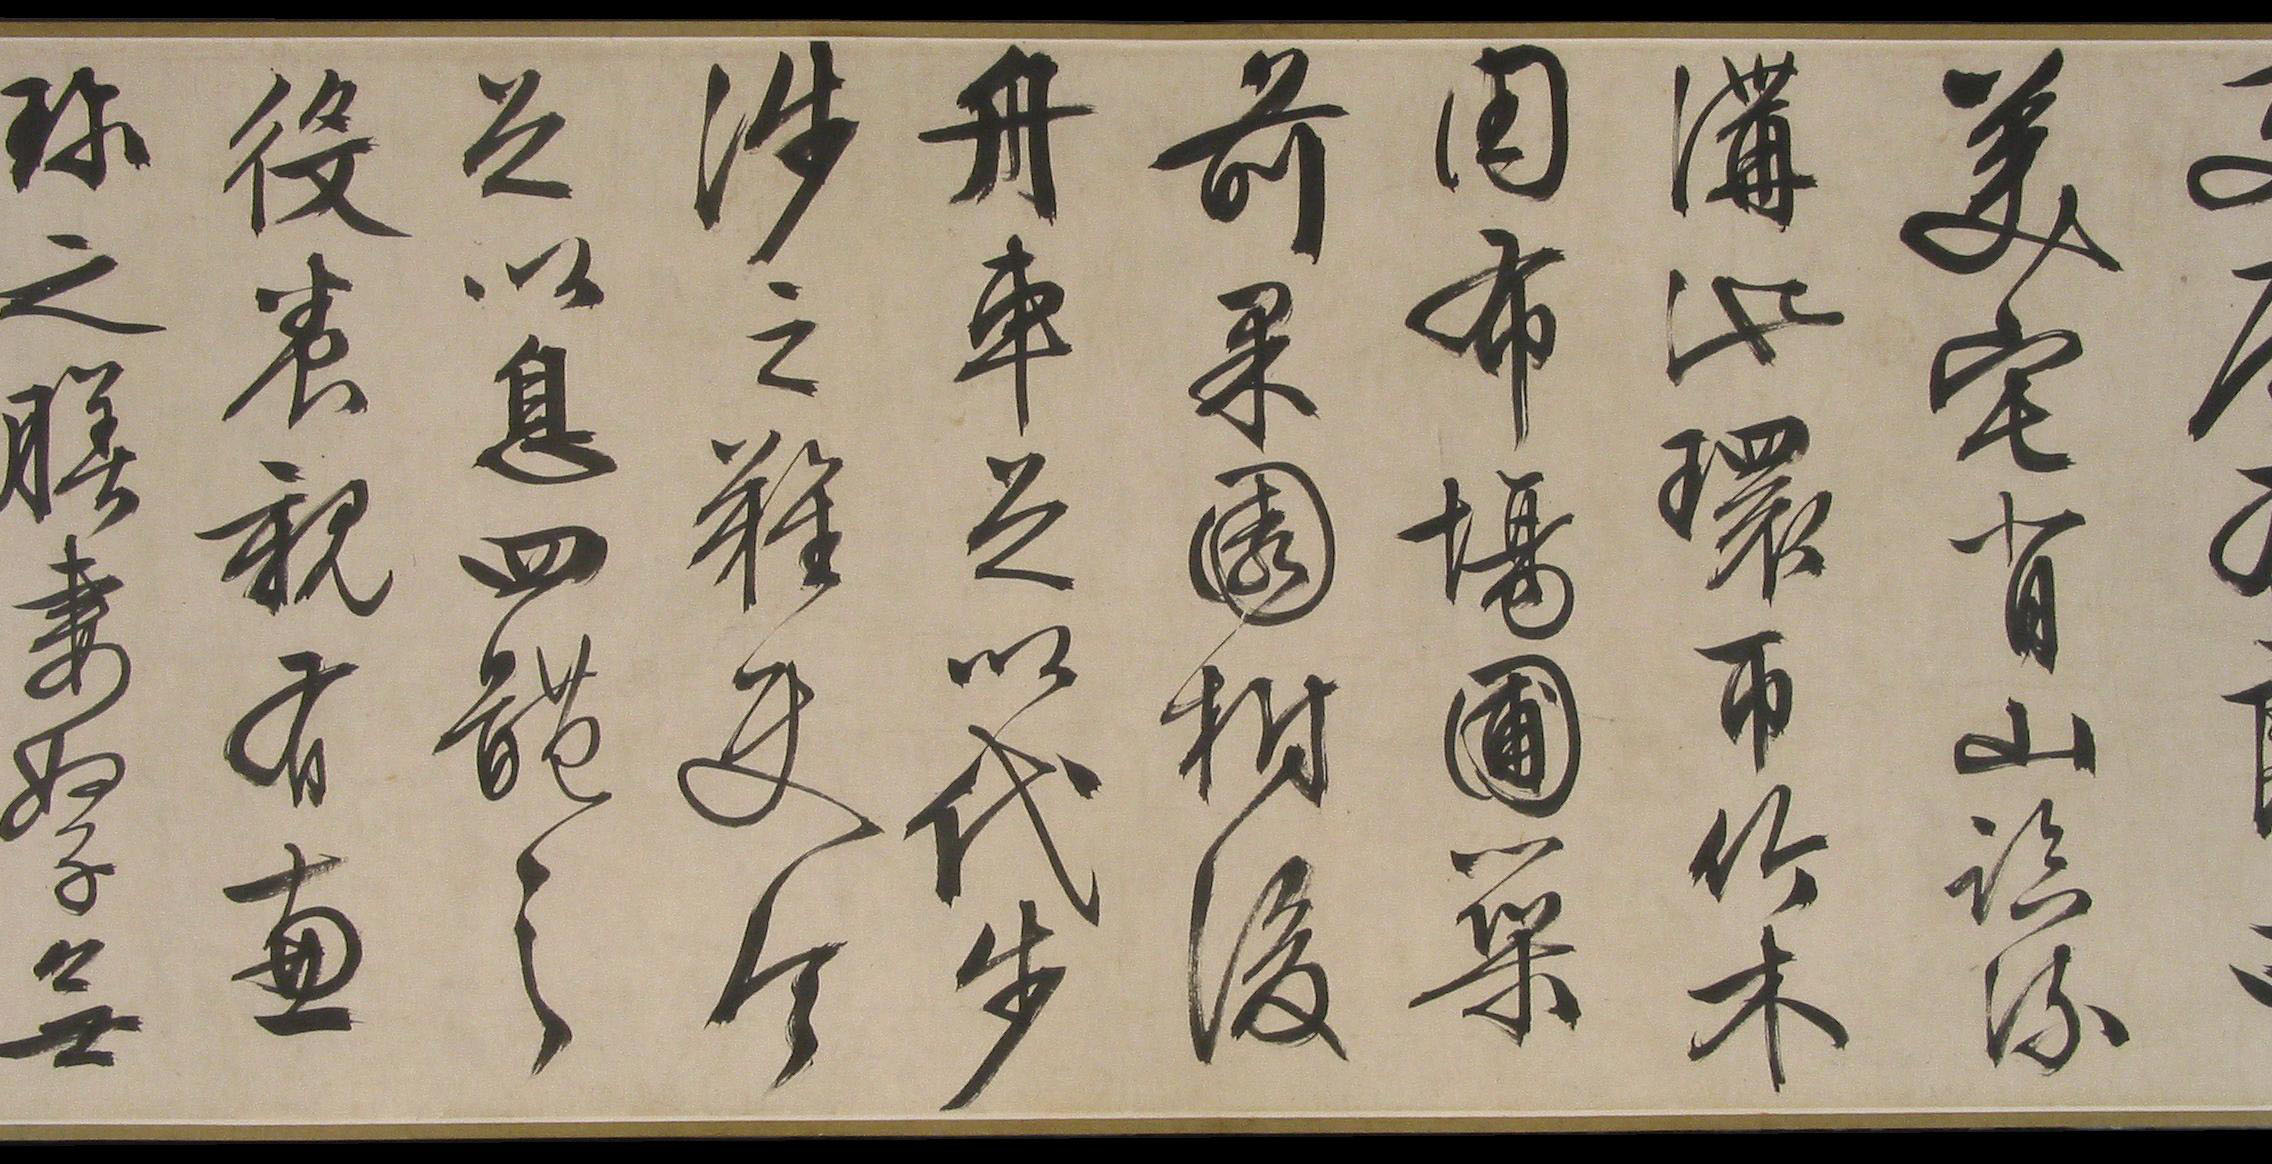 美宅背山臨流
溝池環帀竹木
周布場圃築
前果園樹後
舟車足以代步
涉之難使令
足以息四體之
役養親有兼
珍之膳妻孥無